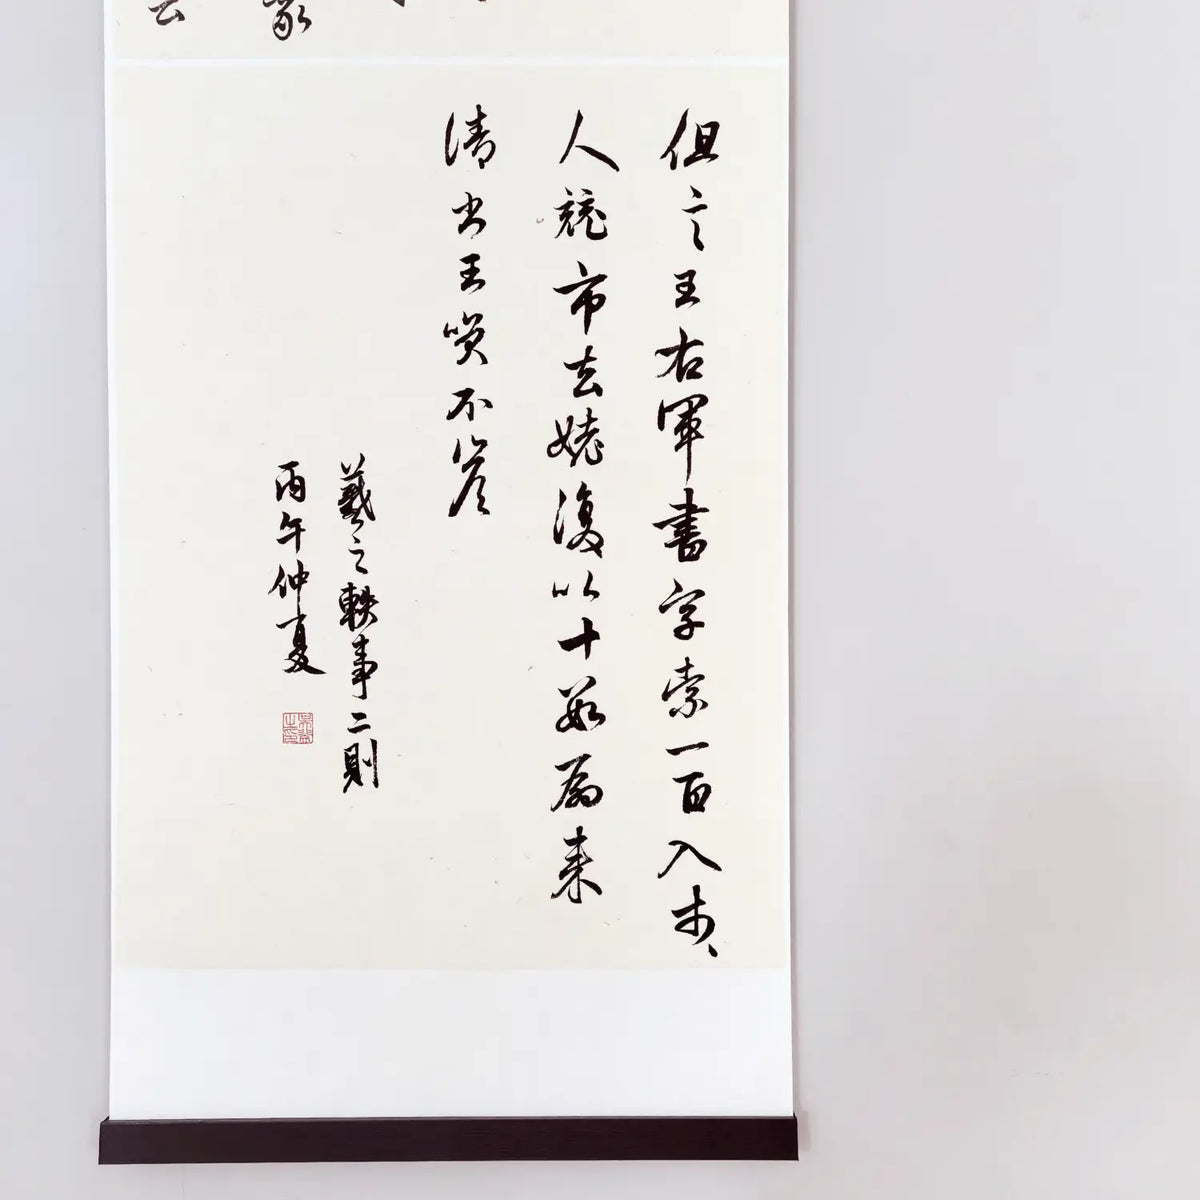 但言王右軍書字索一百入市々
人競市去姥復以十數扇來
請書王笑不答
羲之軼事二則
丙午仲夏